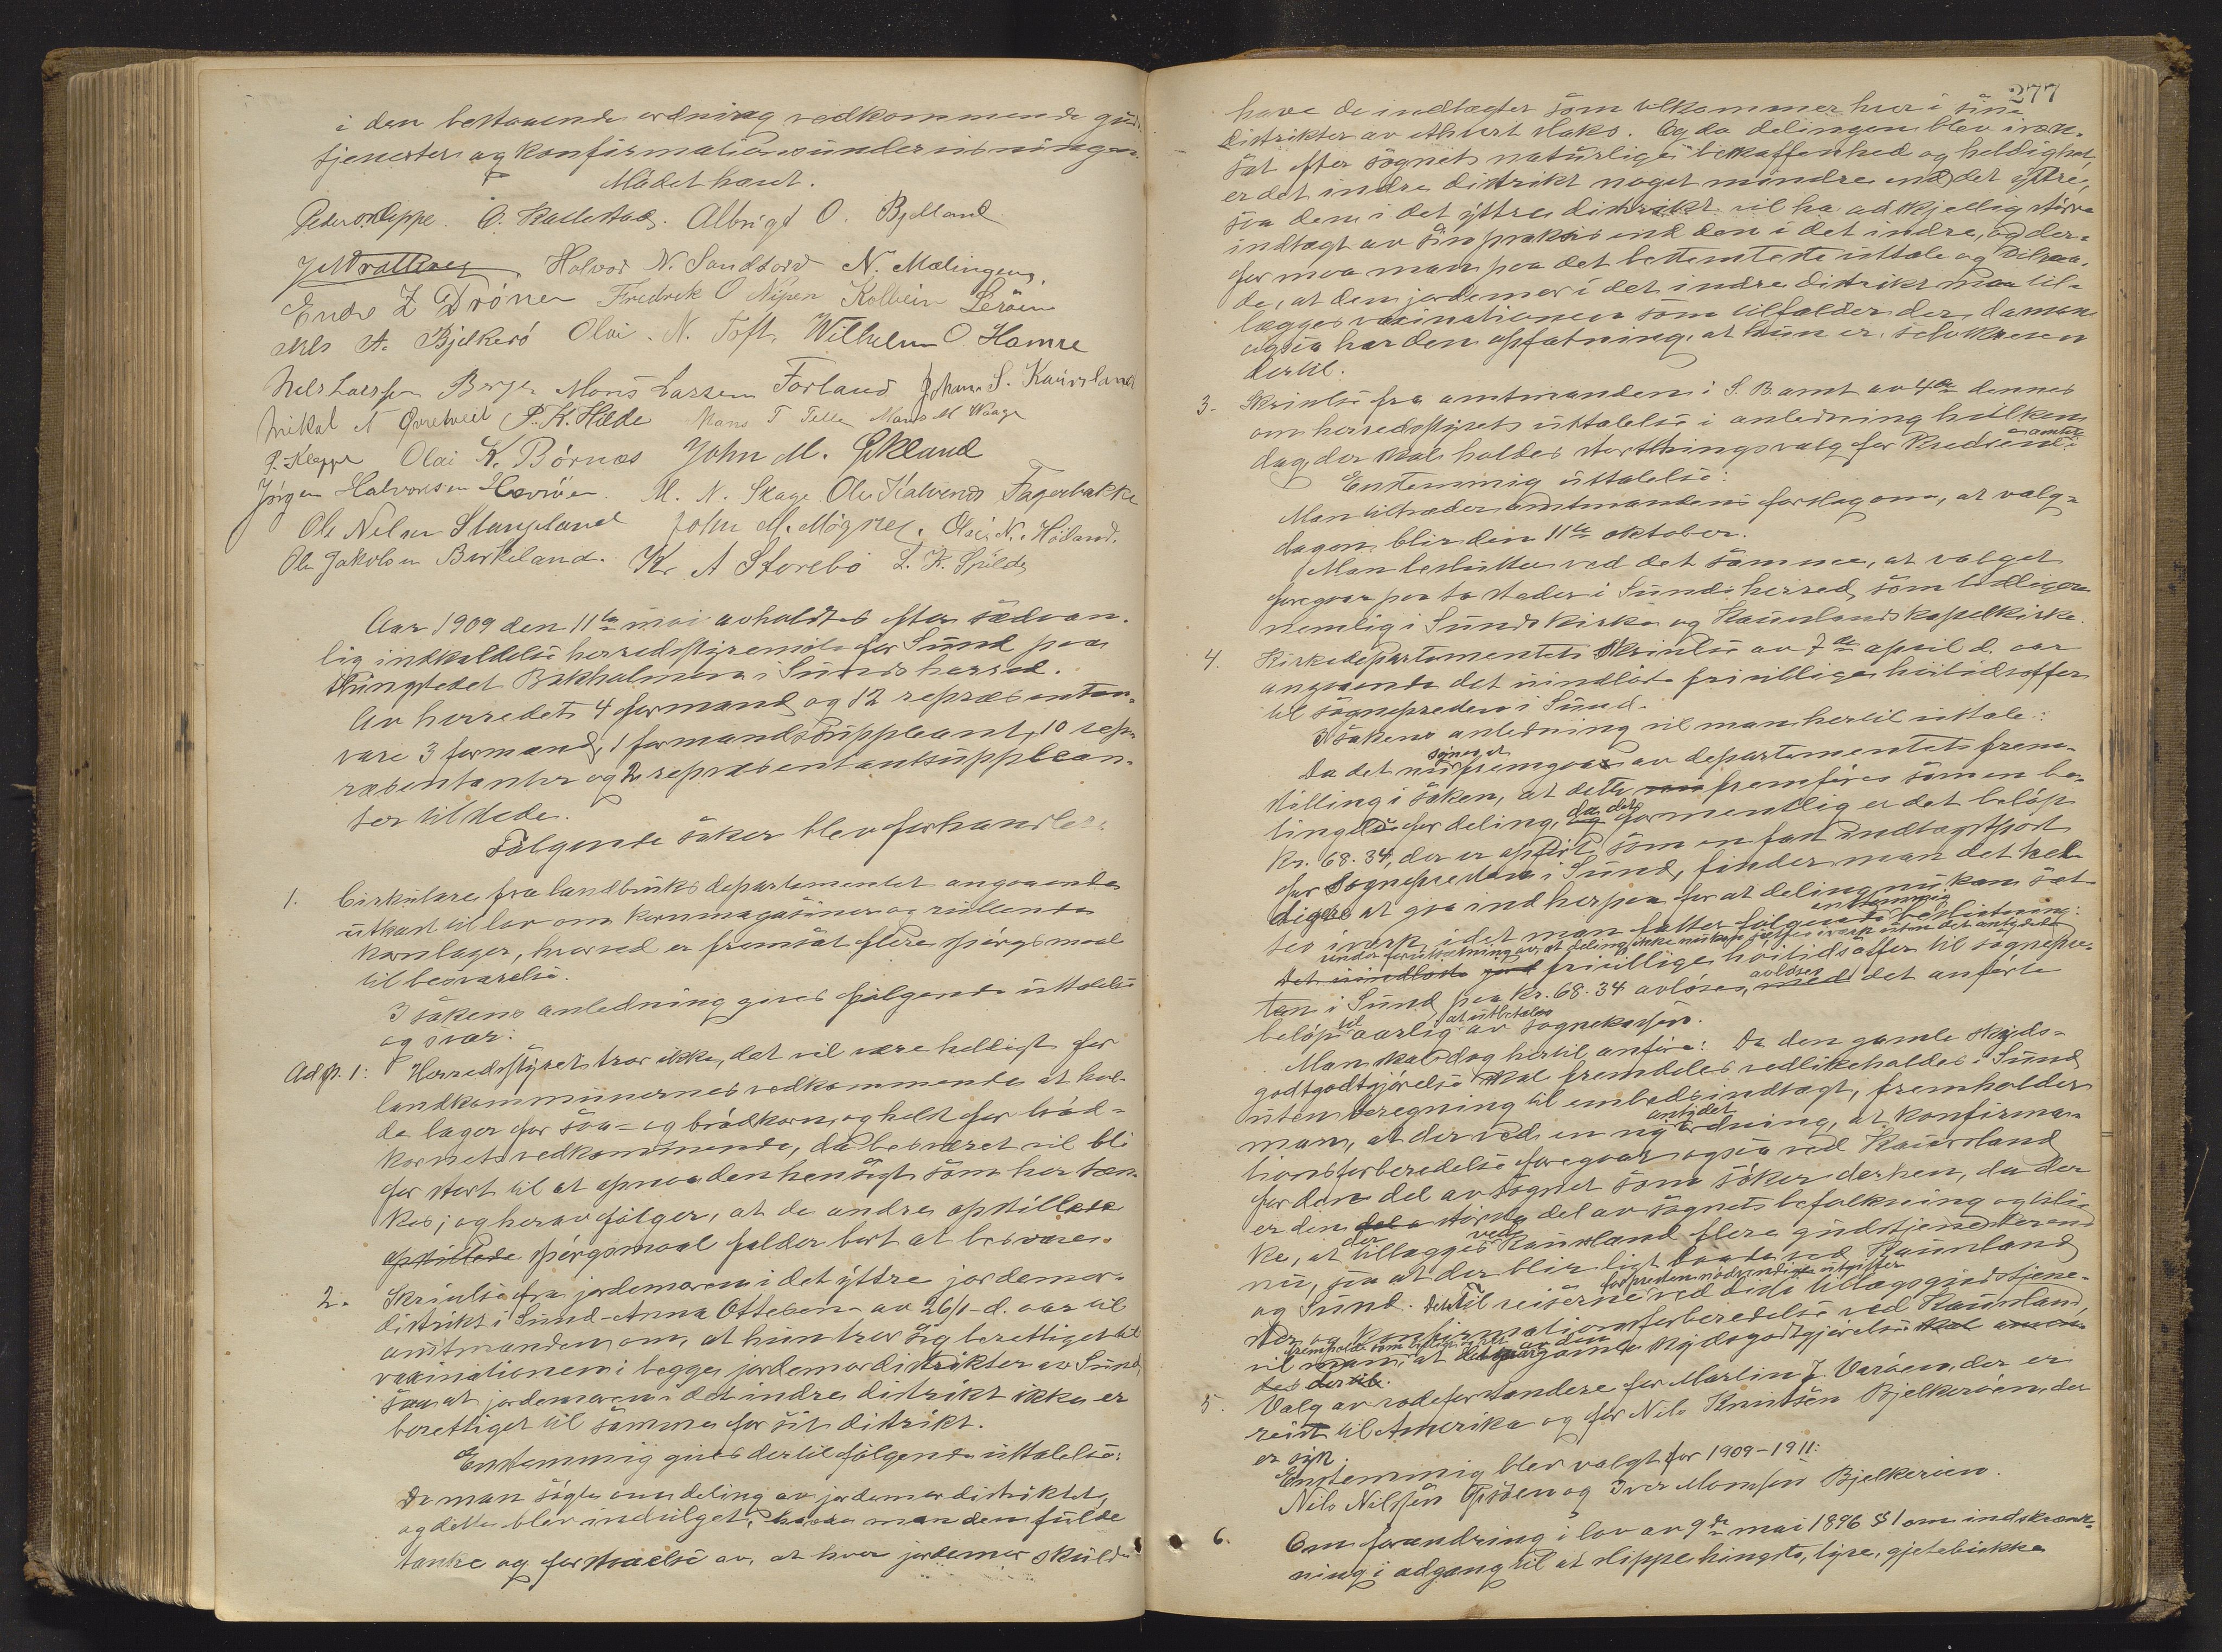 i den bestaaende ordning vedkommende guds-
tjenester og konfirmationsundervisningen.
Mødet hævet.
Peder O. Klippe. O. Kallestad. Albrigt O. Bjelland
Halvor N. Sandtorv N. Mælingen,
Endre Z Trönen Fredrik O Nipen Kolbein Leröen
Nils A. Bjelkerö Olai. N. Toft, Wilhelm O. Hamre
Nils Larssen Berge Mons Larsen Forland Johan S. Kausland
Mikal N Qvretveit P. K. Hilde Mons T Telle Mons M Waage
P. Kleppe Olai K. Börnæs John M. Økland
Jørgen Halvorsen Haveröen. M. N. Skage Ole Halvens Fagerbakke
Ole Nilsen Stangeland John M. Mögster. Olai N. Höiland.
Ole Jakobsen Birkeland. Kr A Storebö L. K. Spilde
Aar 1909 den 11te mai avholdtes efter sædvan-
lig indkaldelse herredsstyremöte for Sund paa
thingstedet Bakholmen i Sunds herred.
Av herredets 4 formænd og 12 repræsentan-
vare 3 formænd, 1 formandssuppleant, 10 rep-
ræsentanter og 2 repræsentantsupplean-
ter tilstede.
Fölgende saker blev forhandlet:
1. Cirkulære fra landbruksdepartementet angaaende
utkast til lov om kornmagasiner og rullende
kornlager, hvorved er fremsat flere spörgsmaal
til besvarelse.
I sakens anledning gives fölgende uttalelse
og svar:
Ad p. 1: Herredsstyret tror ikke, det vil være heldigt for
landkommunernes vedkommende at hol-
de lager for saa- og brödkorn, og helst for bröd-
kornets vedkommende, da besværet vil bli
for stort til at opnaa den hensigt som her tæn-
kes; og herav fölger, at de andre opstillete
opstillede spörgsmaal falder bort at besvare.
2. Skrivelse fra jordemoren i det yttre jordemor-
distrikt i Sund - Anna Ottesen - av 26/1 d. aar til
amtmanden om, at hun tror sig berettiget til
vaxinationen i begge jordemordistrikter av Sund,
saa at jordemoren i det indre distrikt ikke er
berettiget til samme for sit distrikt.
Enstemmig gives dertil fölgende uttalelse:
Da man sögte om deling av jordemordistriktet,
og dette blev indvilget, hadde man den fulde
tanke og forstaaelse av, at hver jordemor skulde
277
have de indtægter som tilkommer hver i sine
distrikter av ethvert slaks. Og da delingen blev iværk-
sat efter sognets naturlige beskaffenhed og heldighet,
er det indre distrikt noget mindre end det yttre,
saa den i det yttre distrikt vil ha adskjellig större
indtægt av sin praksis end den i det indre, og der-
for maa man paa det bestemteste uttale og tilraa-
de, at den jordemor i det indre distrikt maa til-
lægges vaxinationen som tilfalder der, da man
ogsaa har den opfatning, at hun er selvskreven
dertil.
3. Skrivelse fra amtmanden i S. B. amt av 4de dennes
om herredsstyrets uttalelse i anledning hvilken
dag, der skal holdes storthingsvalg for kredsene i
amtet.
Enstemmig uttalelse:
Man tiltræder amtmandens forslag om, at valg-
dagen blir den 11te oktober.
Man beslutter ved det samme, at valget
foregaar paa to steder i Sunds herred, som tidligere
nemlig i Sunds kirke og Kauslands kapelkirke.
4. Kirkedepartementets skrivelse av 7de april d. aar
angaaende det uindløste frivillige höitidsoffer
til sognepresten i Sund.
I sakens anledning vil man hertil uttale:
synes at
Da det nu fremgaa av departementets frem-
stilling i saken, at dette nu fremföres som en be-
tingelse for deling, og da det formentlig er det belöp
Kr. 68.34, der er opfört som en fast indtægtspost
for Sognepresten i Sund, finder man det hel-
digere at gaa ind herpaa for at deling nu kan sæt-
enstemmig
tes iverk, idet man fatter fölgende beslutning:
under forutsætning av, at deling ikke nu kan sættes iverk uten det antydede
Det uindløste frivillige höitidsoffer til sognepre-
sten i Sund paa kr. 68.34 avløses, avlöses med det anförte
til at utbetales
belöp aarlig av sognekassen.
Man skal dog hertil anföre: Da den gamle skyds-
godtgodtgjörelse skal fremdeles vedlikeholdes i Sund
uten beregning til embedsindtægt, fremholder
antydet
man, at der ved en ny ordning, at konfirma-
tionsforberedelse foregaar ogsaa ved Kausland
for den del av sognet som söker derhen, da der
er den del större del av sognets befolkning og lili-
der ved
ke, at tillægges Kausland flere gudstjenester end
nu, saa at der blir ligt baade ved Kausland
for presten nödvendige utgifter
og Sund. Dertil reiserne ved disse tillægsgudstjene-
ster og konfirmationsforberedelse ved Kausland,
vil man, at det gamle skydsgodtgjörelse skal anven-
des dertil.
5. Valg av rodeforstandere for Martin J. Varöen, der er
reist til Amerika og for Nils Knutsen Bjelkeröen, der
er syk.
Enstemmig blev valgt for 1909-1911:
Nils Nilssen Tysöen og Iver Monsen Bjelkeröen.
6. Om forandring i lov av 9de mai 1896 § 1 om indskrænk-
ning i adgang til at slippe hingste, tyre, gjetebukke